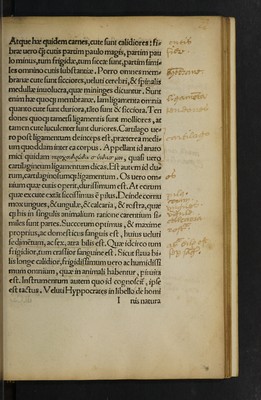 Atque hæ quidem carnes, cute sunt calidiores: fi-
bræ uero q̃ cutis partim paulo magis, partim pau
lo minus, tum frigidæ, tum siccæ sunt, partim simi-
les omnino cutis substantiæ. Porro omnes mem-
branæ cute sunt sicciores, ueluti cerebri, & spinalis
medullæ inuolucra, quæ mininges dicuntur. Sunt
enim hæ quoq; membranæ. Iam ligamenta omnia
quanto cute sunt duriora, tāto sunt & sicciora. Ten
dones quoq; tametsi ligamentis sunt molliores, at
tamen cute luculenter sunt duriores. Cartilago ue-
ro post ligamentum deinceps est, præterea medi-
um quoddam inter ea corpus. Appellant id anato
mici quidam quasi uero
cartilagineum ligamentum dicas. Est autem id du-
rum, cartilaginosumq; ligamentum. Os uero om-
nium quæ cutis operit, durissimum est. At eorum
quæ ex cute extāt siccissimus ē pilus. Deinde cornu
mox ungues, & ungulæ, & calcaria, & rostra, quæ
q; his in singulis animalium ratione carentium si-
miles sunt partes. Succorum optimus, & maxime
proprius, ac domesticus sanguis est, huius ueluti
sedimētum, ac fex, atra bilis est. Quæ idcirco tum
frigidior, tum crassior sanguine est. Sicut flaua bi-
lis longe calidior, frigidissimum uero ac humidissi
mum omnium, quæ in animali habentur, pituita
est. Instrumentum autem quo id cognoscit̃, ipse
est tactus. Veluti Hyppocrates in libello de homi
I nis natura
cartilago
os